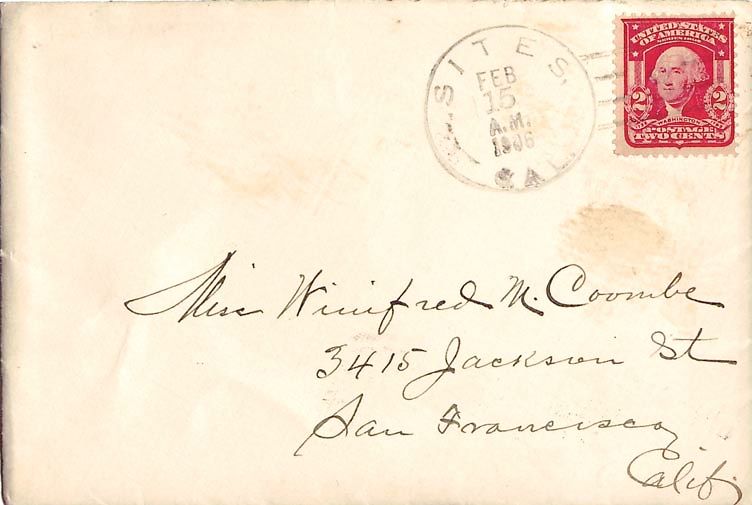 SITES,
FEB
15
A.M.
1906
CAL.
UNITED STATES
OF AMERICA
2 2
WASHINGTON
POSTAGE
TWO CENTS
Miss Winifred M. Coombe
3415 Jackson St
San Francisco
Calif.